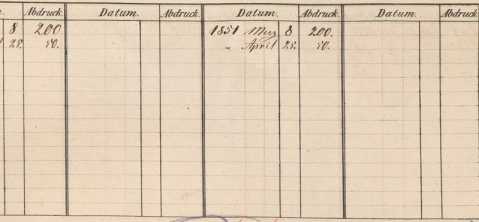 Abdruck. Datum. Abdruck. Datum. Abdruck. Datum. Abdruck.
8 200 1851 8 200.
28. 50. " April 28. 50.